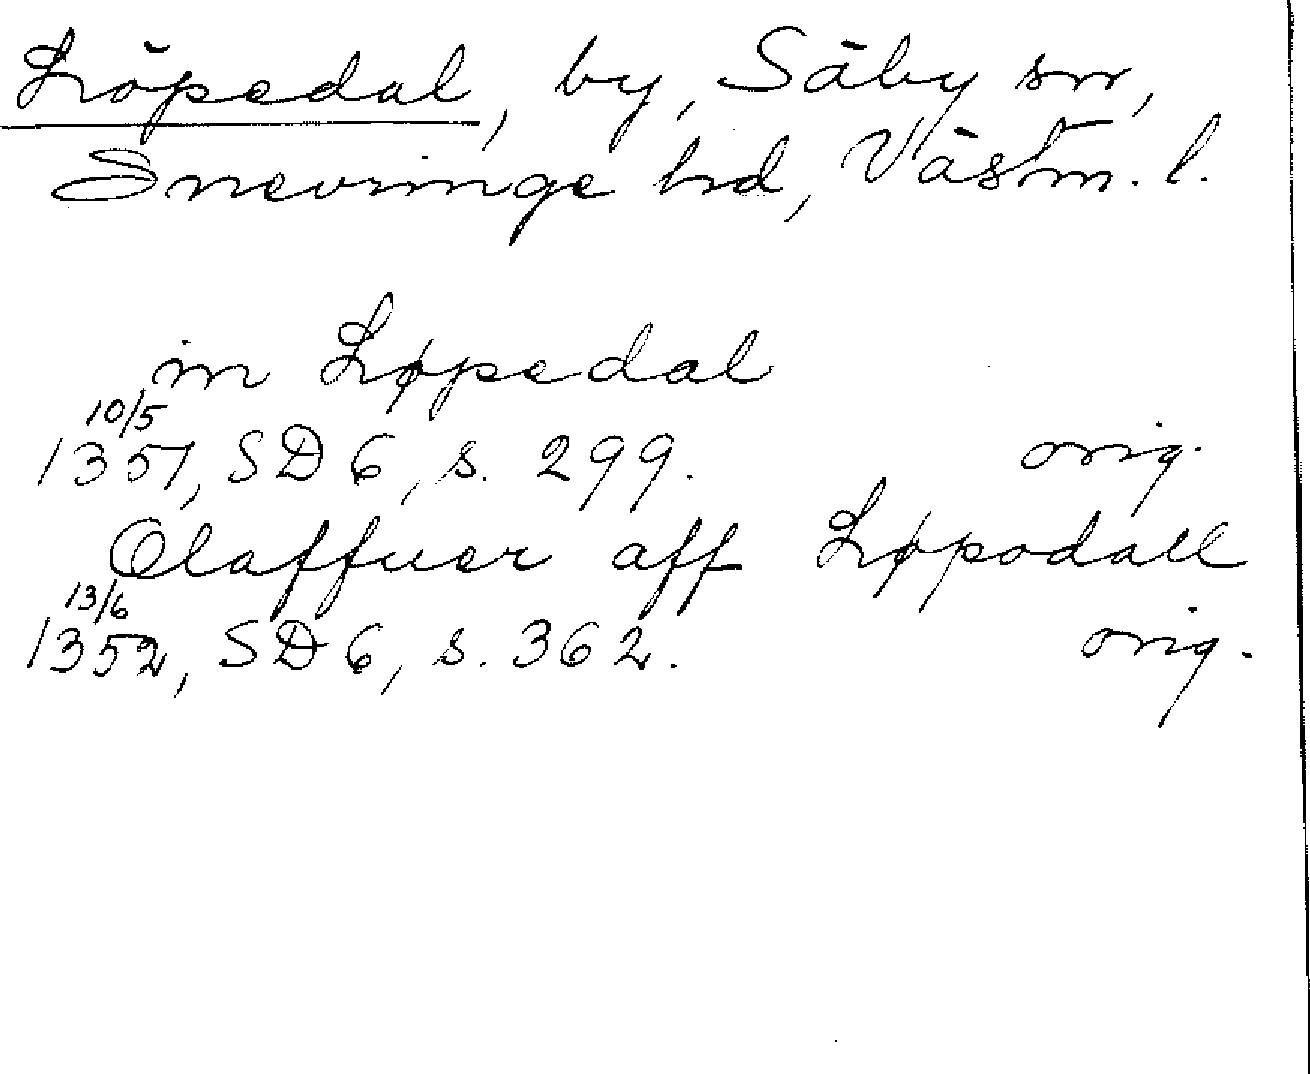 Löpedal, by, Säby sn,
Snevringe hd, Västm. l.
in Løpedal
10/5
1351, SD 6, s. 299. orig.
Olaffuer aff Løpodall
13/6
1352, SD 6, s. 362. orig.